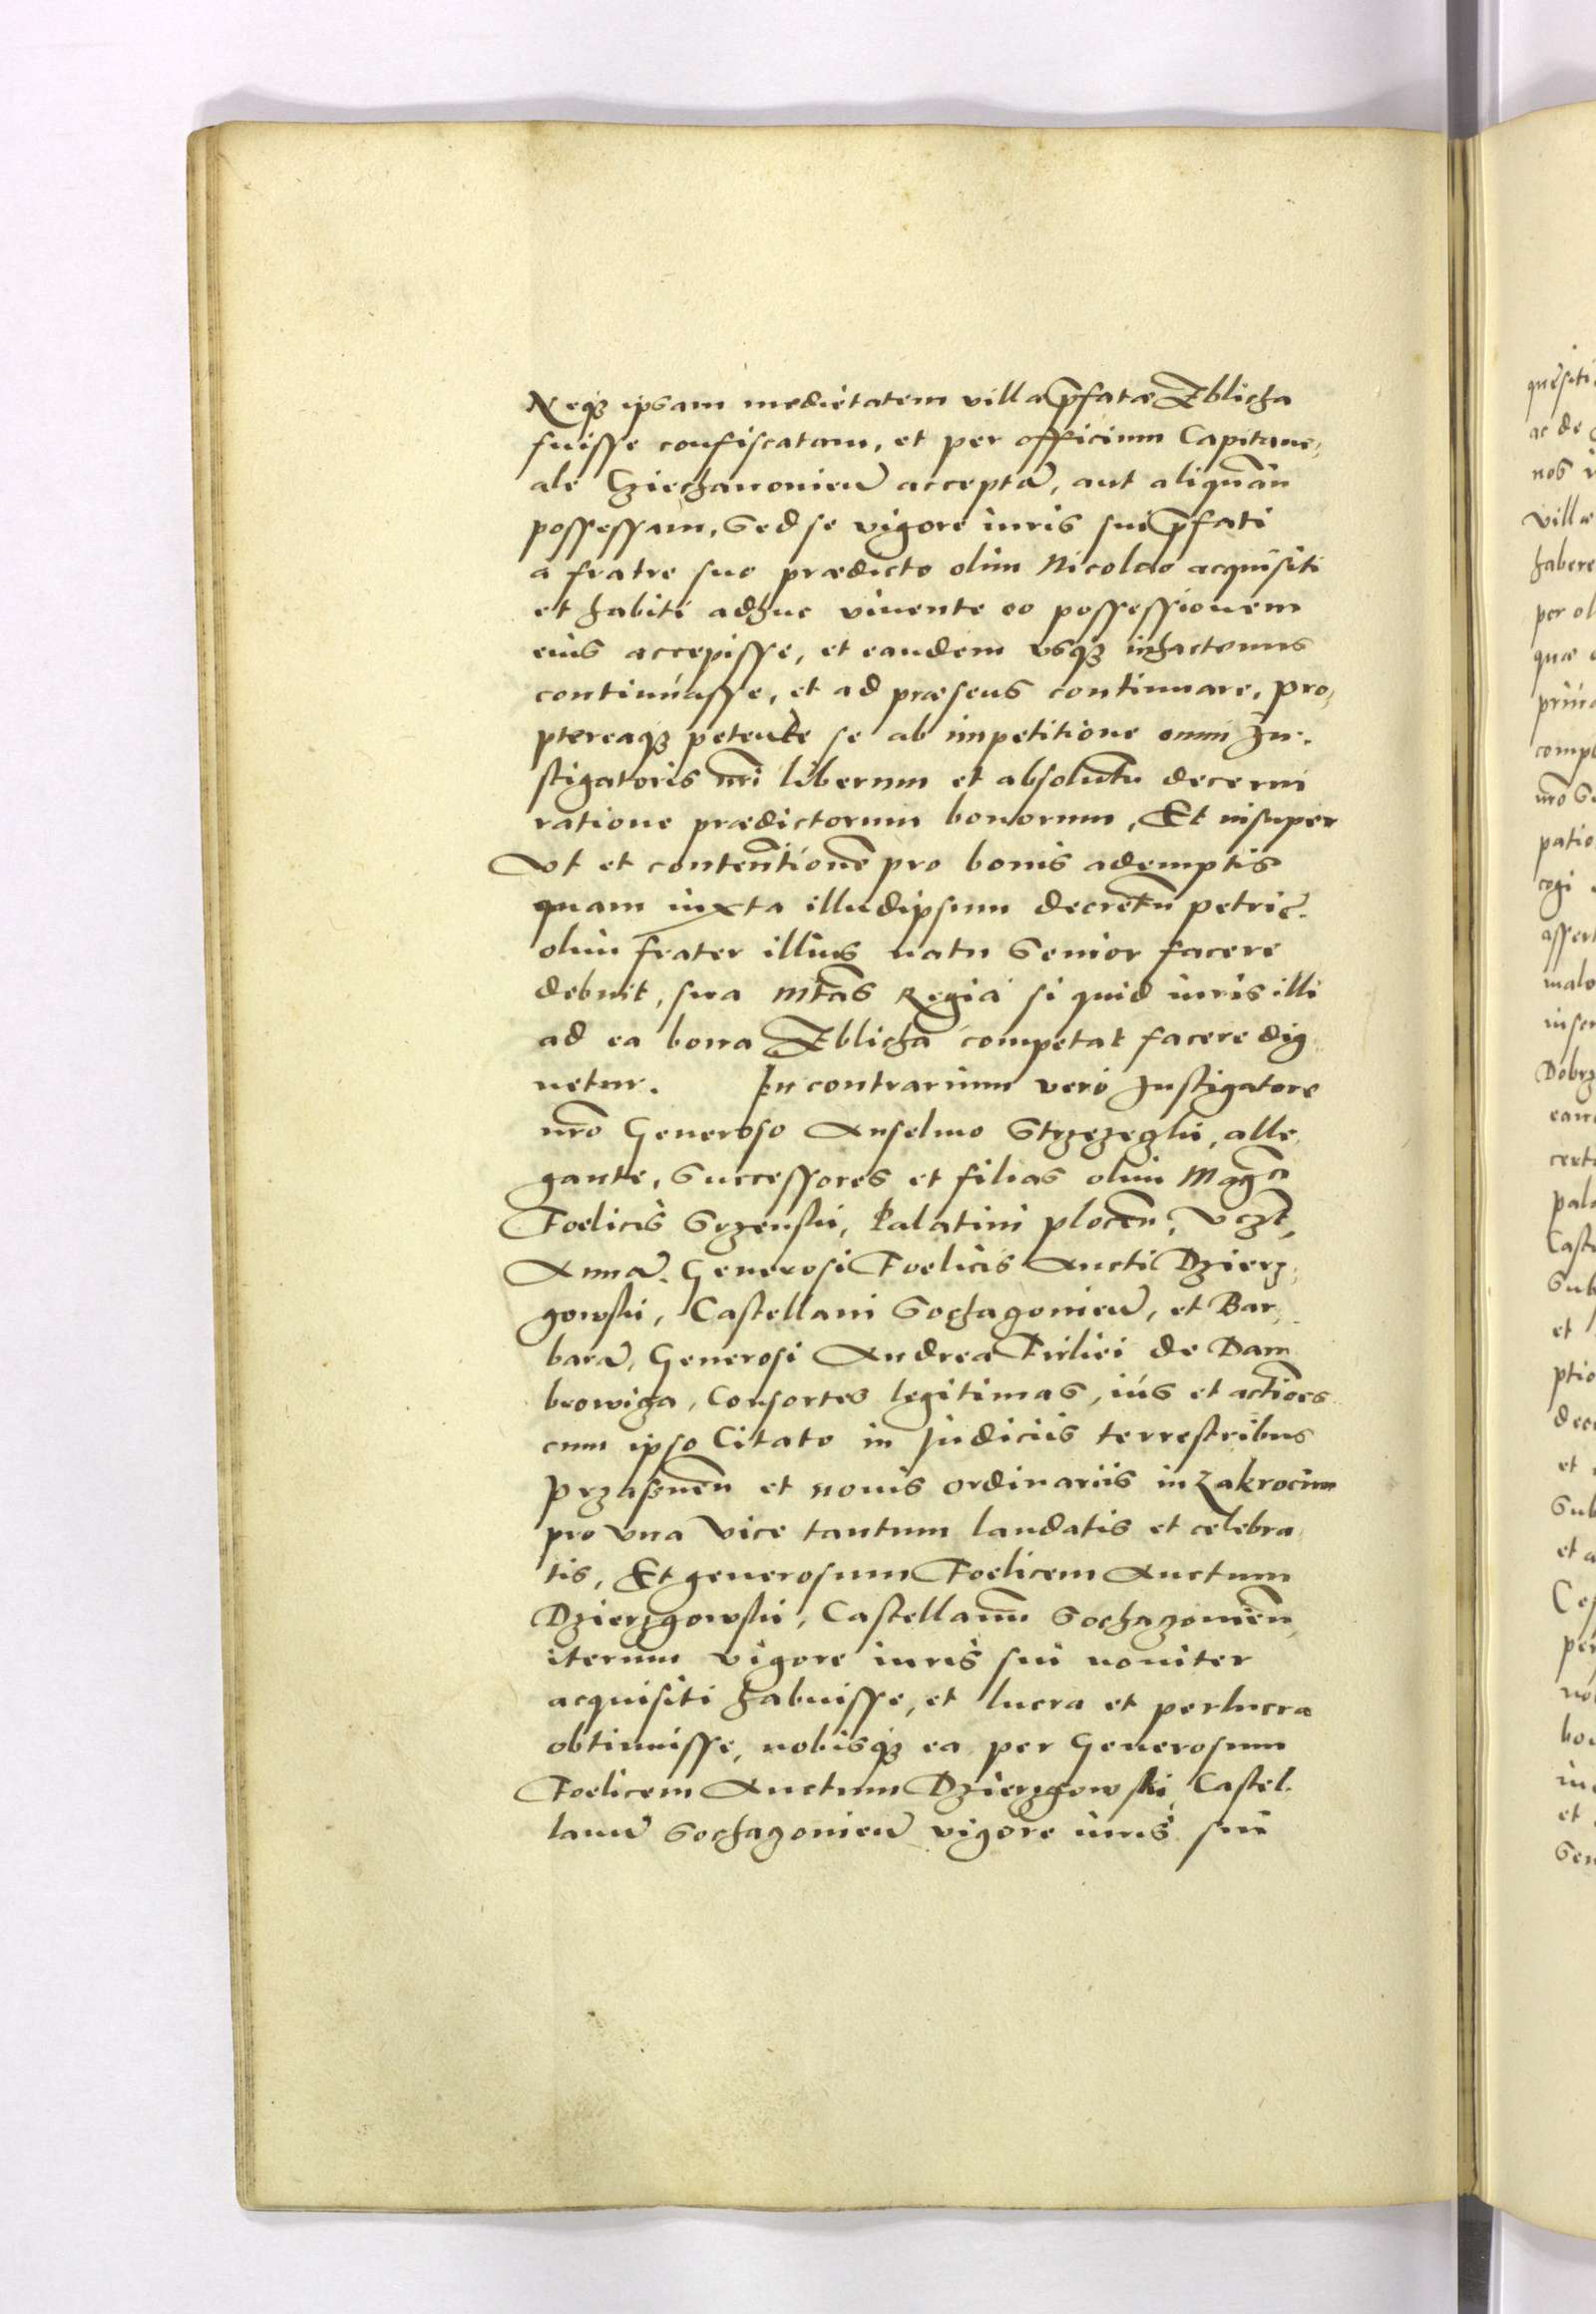 Neqȝ ipsam medietatem villæ p̄fatæ Zblicha
fuisse confiscatam, et per officium Capitane,
ale Cziechanonien̄ acceptā, aut aliquān
possessam, Sed se vigore iuris sui p̄fati
a fratre suo prædicto olim Nicolao acquisiti
et habiti adhuc viuente eo possessionem
eius accepisse, et eandem vsqȝ inhactenus
continuasse, et ad præsens continuare, pro,
ptereaqȝ petente se ab impetitione omni In,
stigatoris nr̄i liberum et absolutū decerni
ratione prædictorum bonorum, Et insuper
Vt et contentionē pro bonis ademptis
quam iuxta illudipsum decretū petric̄.
olim frater illius natu Senior facere
debuit, sua Mtās Regia si quid iuris illi
ad ea bona Zblicha competat facere dig
netur. In contrarium vero Instigatore
nr̄o Generoso Anselmo Strzezeglii, alle,
gante, Successores et filias olim Maḡci
Foelicis Srzenskii, Palatini plocen̄, vczt,
Annā, Generosi Foelicis Aucti Dzierz,
gowskii, Castellani Sochaczonien̄, et Bar,
barā, Generosi Andreæ Firliei de Dam
browiga, Consortes legitimas, ius et actiōes
cum ipso Citato in Judiciis terrestribus
Przasznen̄ et nouis ordinariis in Zakrocim
pro vna vice tantum laudatis et celebra
tis, Et generosum Foelicem Auctum
Dzierzgowskii, Castellanū Sochaczonien̄,
iterum vigore iuris sui nouiter
acquisiti habuisse, et lucra et perlucra
obtinuisse, nobisqȝ ea per Generosum
Foelicem Auctum Dzierzgowski, Castel,
lanū Sochaczonien̄ vigore iuris sui